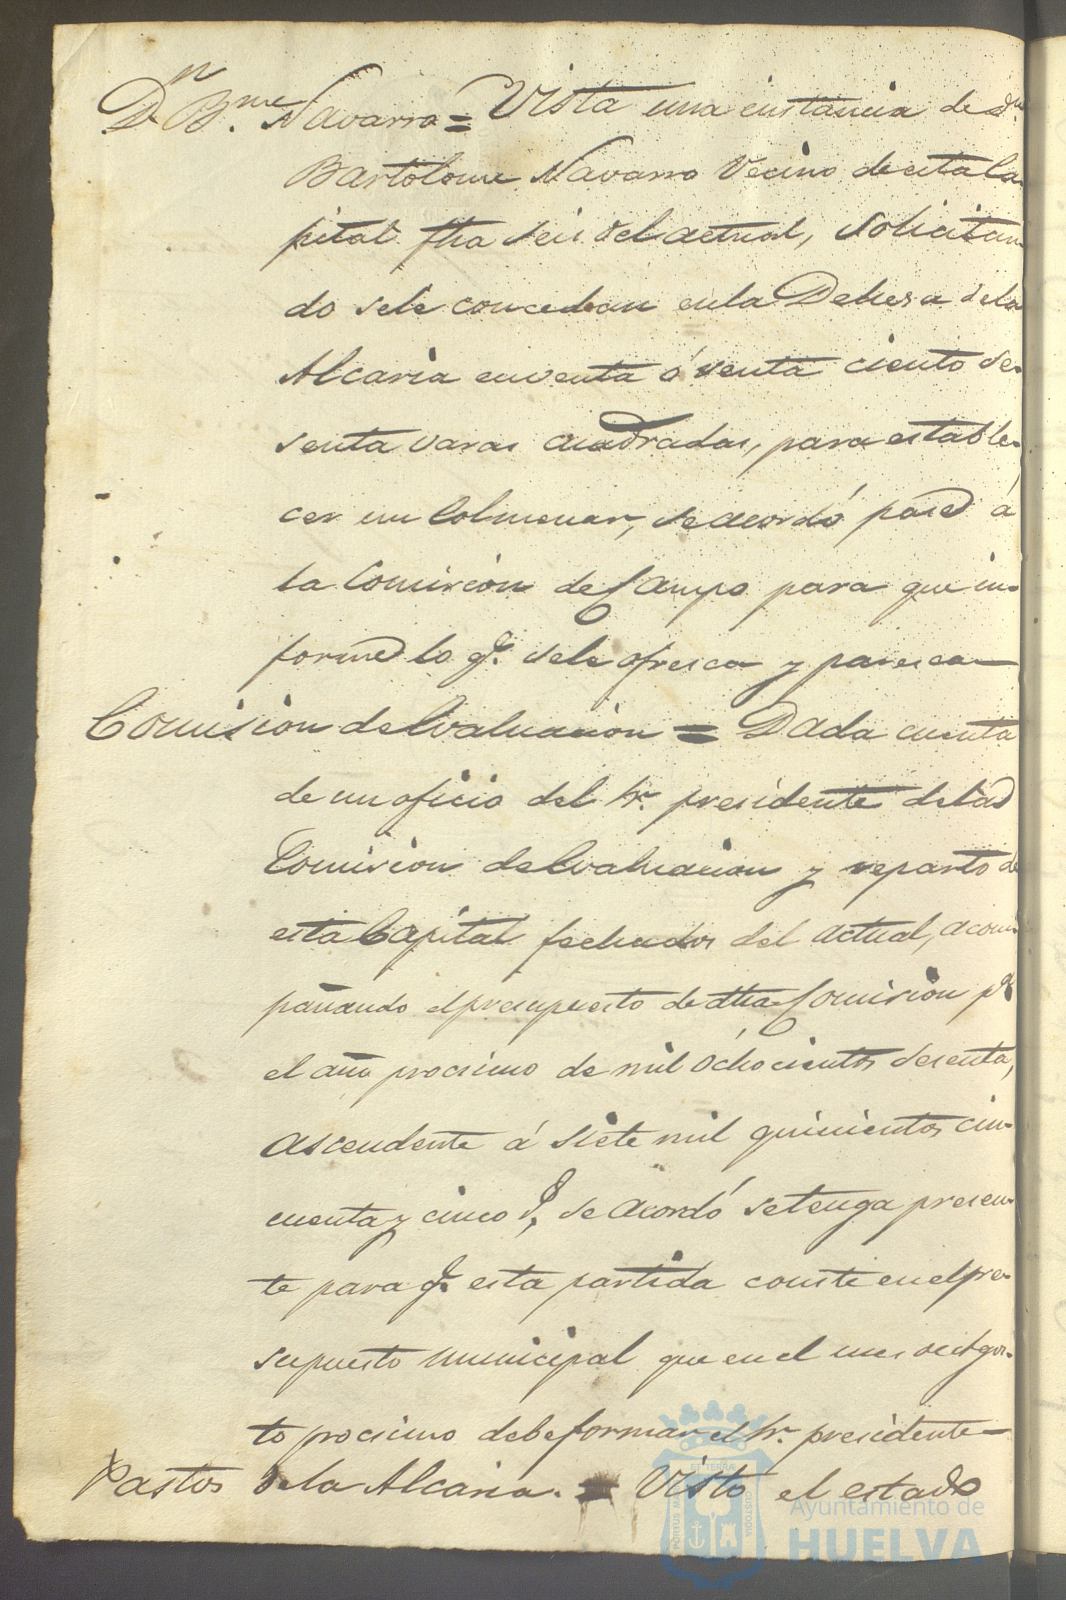 Dn Bme. Navarro = Vista una instancia de dn.
Bartolome Navarro Vecino de esta Ca
pital fha seis del actual, solicitan
do sele concedan en la Dehesa dela
Alcaria en venta ó renta ciento se-
senta varas cuadradas, para estable-
cer un Colmenar, se acordó pase á
la Comision de Campo para que in-
forme lo q. sele ofresca y paresca
Comision de Evaluacion = Dada cuenta
de un oficio del Sr. presidente dela
Comision de Evaluacion y reparto de
esta Capital fecha dos del actual, acom
pañando el presupuesto de dha Comision pa
el año procsimo de mil ochocientos sesenta,
ascendente á siete mil quinientos cin-
cuenta y cinco r, se acordó se tenga presen-
te para q. esta partida conste en el pre-
supuesto municipal que en el mes de Agos-
to procsimo debe formar el Sr. presidente
Pastos dela Alcaria. = Visto el estado
PORTUS MA
ET TERRÆ
CUSTODIA
Ayuntamiento de
HUELVA